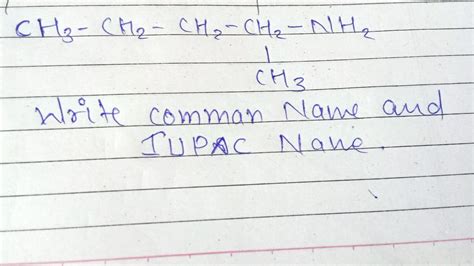 CH3-CH2-CH2-CH2-NH2
|
CH3
Write comman Name and
IUPAC Nane.